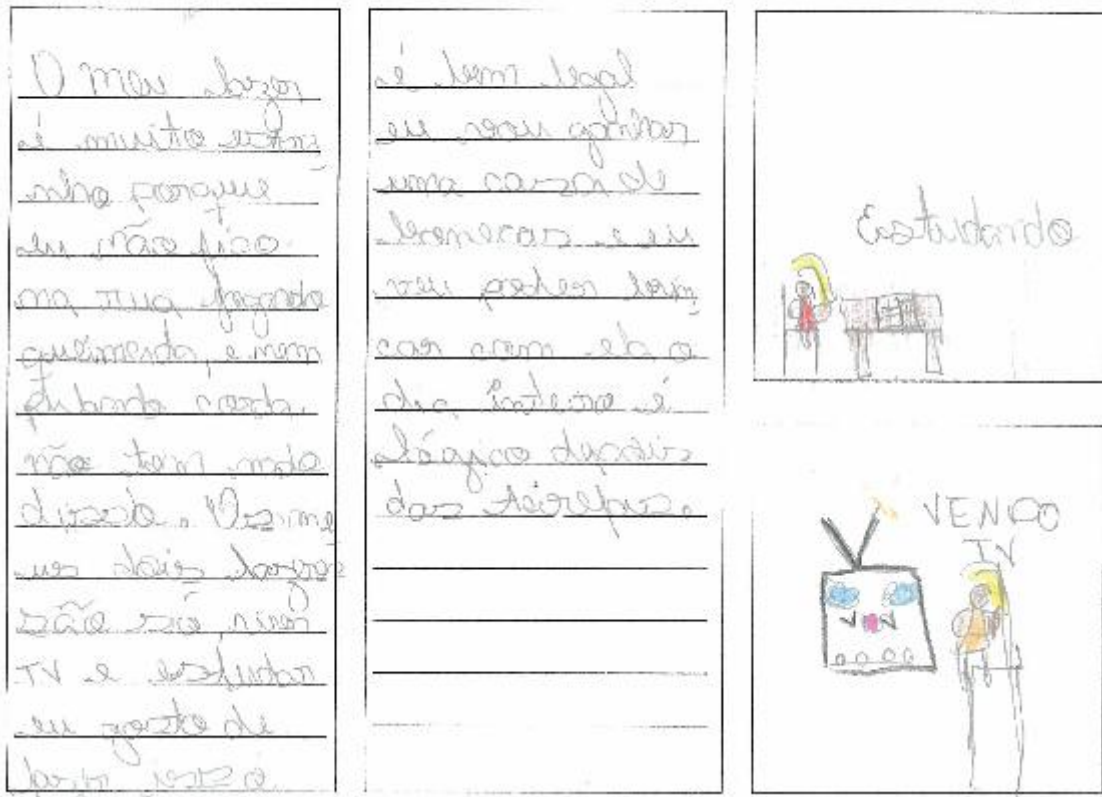 O meu lazer
é muito estra
nho porque
eu não fico
na rua fazendo
queimenda, e nem
pulando corda,
não tem nada
disso. Os me
us dois lazeres
são só ver
TV e estudar
eu gosto de
fazer isso
é bem legal
eu vou ganhar
uma casa de
bonecas e eu
vou poder brin
car com ela o
dia inteiro é
lógico depois
das tarefas.
Estudando
VENDO
TV